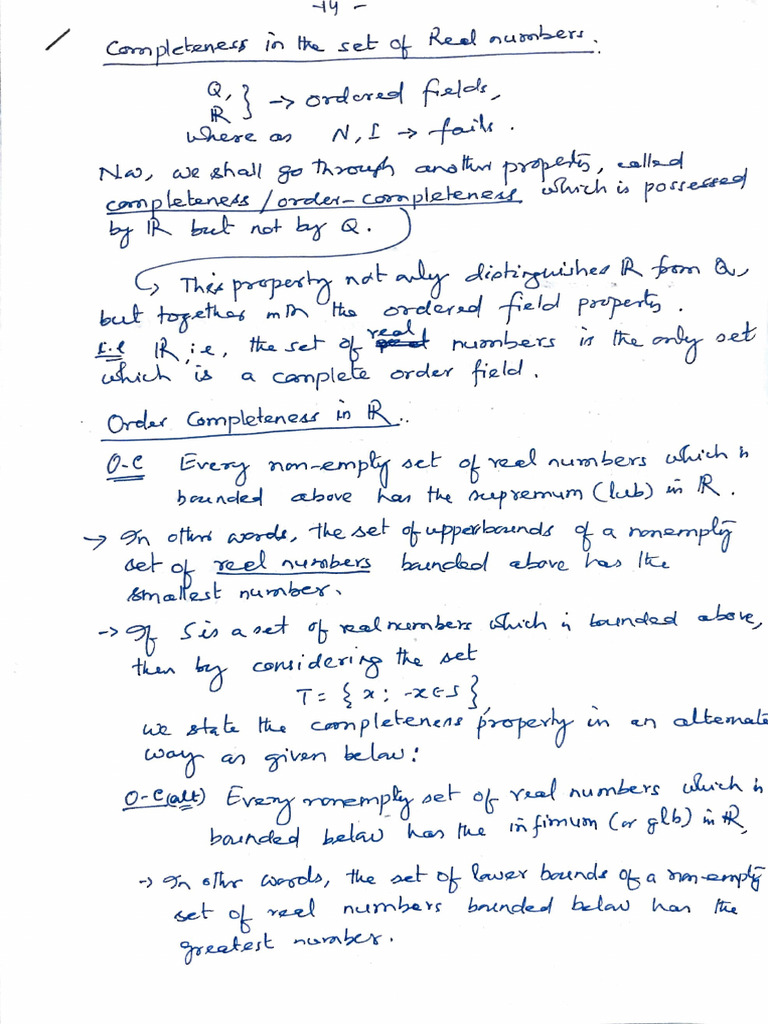 -14-
Completeness in the set of Real numbers.
Q,
ℝ } → ordered fields,
where as N, I → fails.
Now, we shall go through another property, called
completeness / order-completeness which is possessed
by ℝ but not by Q.
This property not only distinguishes ℝ from Q,
but together with the ordered field property.
i.e ℝ, i.e, the set of real numbers is the only set
which is a complete order field.
Order Completeness in ℝ..
O-C Every non-empty set of real numbers which is
bounded above has the supremum (lub) in ℝ.
→ In other words, the set of upperbounds of a nonempty
set of reel numbers bounded above has the
smallest number.
→ If S is a set of real numbers which is bounded above,
then by considering the set
T = { x : -x ∈ S },
we state the completeness property in an alternate
way as given below:
O-C(alt) Every nonempty set of real numbers which is
bounded below has the infimum (or glb) in ℝ,
→ In other words, the set of lower bounds of a non-empty
set of real numbers bounded below has the
greatest number.